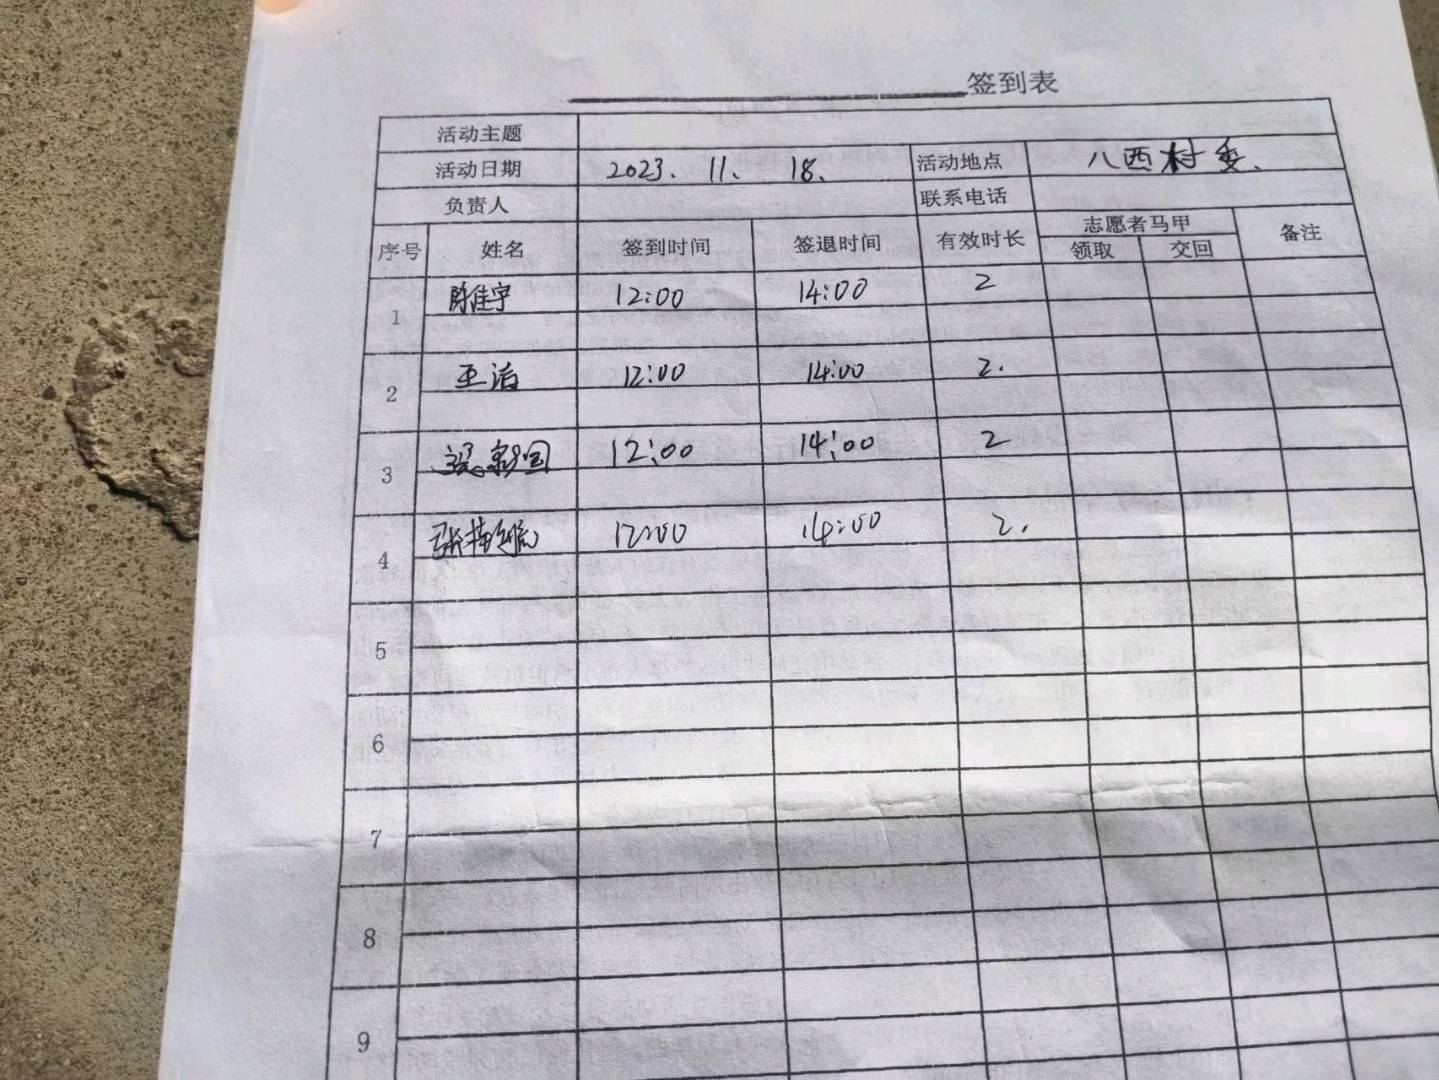 签到表
活动主题
活动日期 2023. 11. 18. 活动地点 八西村委.
负责人 联系电话
序号 姓名 签到时间 签退时间 有效时长 志愿者马甲 备注
领取 交回
1 陈佳宇 12:00 14:00 2
2 王洁 12:00 14:00 2.
3 12:00 14:00 2
4 12:00 14:00 2.
5
6
7
8
9